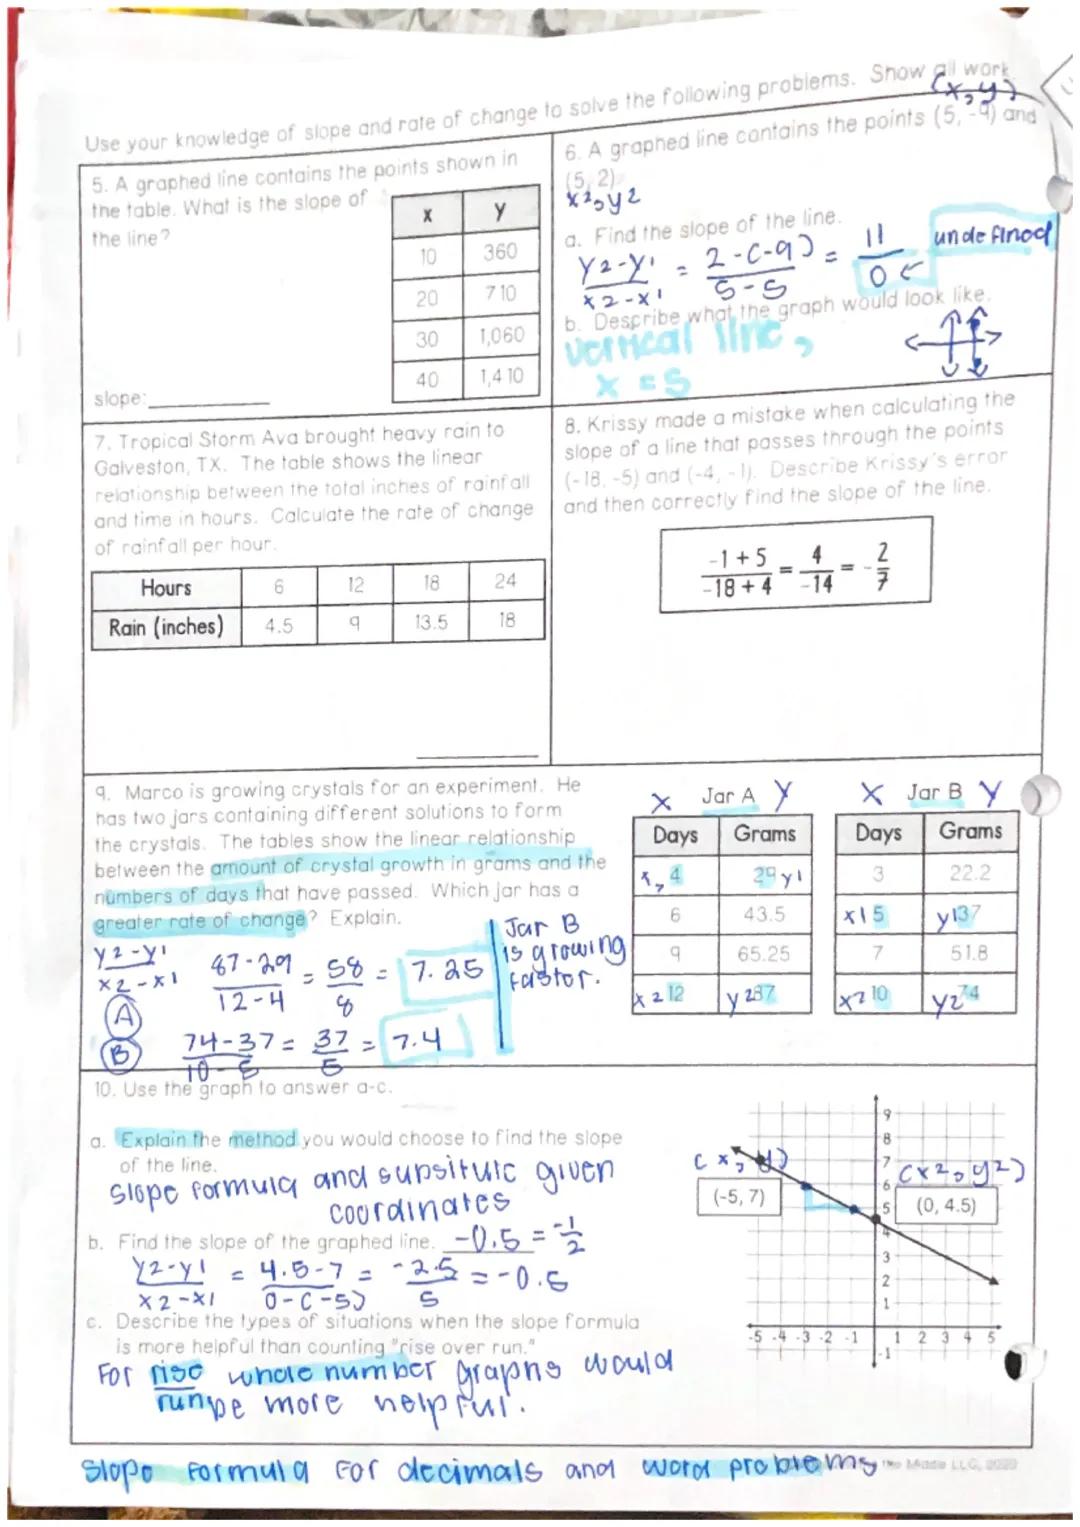 Use your knowledge of slope and rate of change to solve the following problems. Show all work.
(x, y)
5. A graphed line contains the points shown in
the table. What is the slope of
the line?
x y
10 360
20 710
30 1,060
40 1,410
slope:
6. A graphed line contains the points (5, -9) and
(5, 2).
x2, y2
a. Find the slope of the line.
y2-y1 = 2-(-9) = 11 undefined
x2-x1 5-5 0
b. Describe what the graph would look like.
vertical line,
x = 5
7. Tropical Storm Ava brought heavy rain to
Galveston, TX. The table shows the linear
relationship between the total inches of rainfall
and time in hours. Calculate the rate of change
of rainfall per hour.
Hours 6 12 18 24
Rain (inches) 4.5 9 13.5 18
8. Krissy made a mistake when calculating the
slope of a line that passes through the points
(-18, -5) and (-4, -1). Describe Krissy's error
and then correctly find the slope of the line.
-1 + 5 = 4 = - 2
-18 + 4 -14 7
9. Marco is growing crystals for an experiment. He
has two jars containing different solutions to form
the crystals. The tables show the linear relationship
between the amount of crystal growth in grams and the
numbers of days that have passed. Which jar has a
greater rate of change? Explain.
y2-y1
x2-x1
A 87-29 = 58 = 7.25
12-4 8
B 74-37 = 37 = 7.4
10-5 5
Jar B
is growing
faster.
X Jar A Y
Days Grams
x1 4 29 y1
6 43.5
9 65.25
x2 12 y2 87
X Jar B Y
Days Grams
3 22.2
x1 5 y1 37
7 51.8
x2 10 y2 74
10. Use the graph to answer a-c.
a. Explain the method you would choose to find the slope
of the line.
slope formula and supsitutc given
coordinates
b. Find the slope of the graphed line. -0.5 = -1
2
y2-y1 = 4.5-7 = -2.5 = -0.5
x2-x1 0-(-5) 5
c. Describe the types of situations when the slope formula
is more helpful than counting "rise over run."
For rise whole number graphs would
run be more helpful.
(x, y)
(-5, 7)
(x2, y2)
(0, 4.5)
9
8
7
6
5
4
3
2
1
-5 -4 -3 -2 -1 1 2 3 4 5
-1
slope formula for decimals and word problems